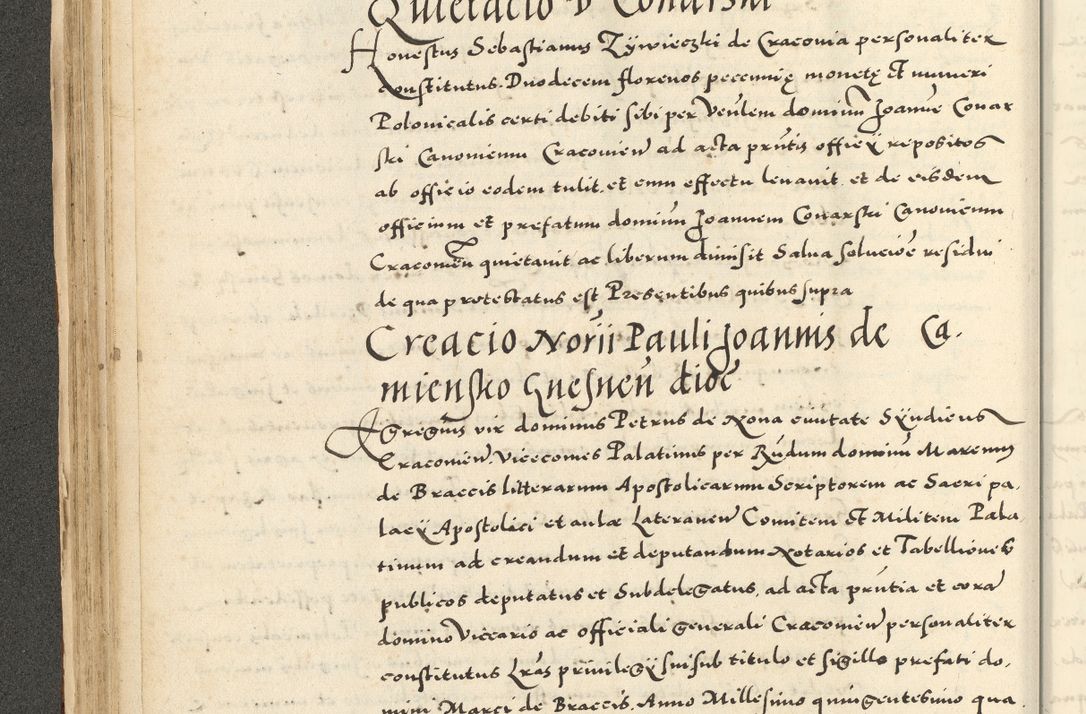 Quietacio D Conarski
Honestus Sebastianus Zÿwieczki de Cracovia personaliter
constitutus. Duodecem florenos peccunię monetę et numeri
Polonicalis certi debiti sibi per Venlem dominũ Joannẽ Conar
ski Canonicum Cracovien ad acta pñtis officÿ repositos
ab officio eodem tulit et cum effectu levavit. et de eisdem
officium et prefatum dominũm Joannem Conarski Canonicum
Cracovien quietavit ac liberum dimisit Salva solucioe residui
de qua protestatus est Presentibus quibus supra
Creacio Norii Pauli Joannis de Ca.
miensko Gnesneñ dioc
Egregius vir dominus Petrus de Nova civitate Sÿndicus
Cracovien. Vicecomes Palatinus per Rñdum dominũ Marcum
de Braccis litterarum Apostolicarum Scriptorem ac Sacri pa.
lacÿ Apostolici et aulæ Lateranen Comitem et Militem Pala.
tinum ad creandum et deputandum Notarios et Tabelliones
publicos deputatus et Subdelegatus, ad acta pñtia et cora
domino Viccario ac officiali generali Cracovien personaliter
constitutus Lras privilegÿ sui sub titulo et sigillo prefati do.
mini Marci de Braccis. Anno Millesimo quingentesimo qua